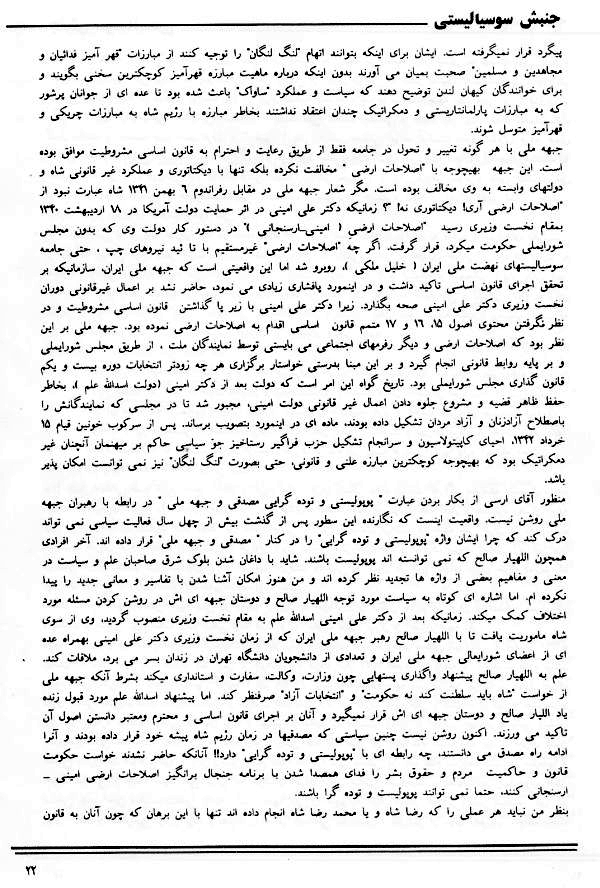 جنبش سوسیالیستی
پیگرد قرار نمیگرفته است. ایشان برای اینکه بتوانند اتهام "لنگ لنگان" را توجیه کنند از مبارزات "قهر آمیز فدائیان و
مجاهدین و مسلمین" صحبت بمیان می آورند بدون اینکه درباره ماهیت مبارزه قهرآمیز کوچکترین سخنی بگویند و
برای خوانندگان کیهان لندن توضیح دهند که سیاست و عملکرد "ساواک" باعث شده بود تا عده ای از جوانان پرشور
که به مبارزات پارلمانتاریستی و دمکراتیک چندان اعتقاد نداشتند بخاطر مبارزه با رژیم شاه به مبارزات چریکی و
قهرآمیز متوسل شوند.
جبهه ملی با هر گونه تغییر و تحول در جامعه فقط از طریق رعایت و احترام به قانون اساسی مشروطیت موافق بوده
است. این جبهه بهیچوجه با "اصلاحات ارضی " مخالفت نکرده بلکه تنها با دیکتاتوری و عملکرد غیر قانونی شاه و
دولتهای وابسته به وی مخالف بوده است. مگر شعار جبهه ملی در مقابل رفراندوم ٦ بهمن ۱۳۴۱ شاه عبارت نبود از
"اصلاحات ارضی آری! دیکتاتوری نه! ؟ زمانیکه دکتر علی امینی در اثر حمایت دولت آمریکا در ۱۸ اردیبهشت ۱۳۴۰
بمقام نخست وزیری رسید "اصلاحات ارضی ( امینی_ارسنجانی )" در دستور کار دولت وی که بدون مجلس
شورایملی حکومت میکرد، قرار گرفت. اگر چه "اصلاحات ارضی" غیرمستقیم با تا ئید نیروهای چپ ، حتی جامعه
سوسیالیستهای نهضت ملی ایران ( خلیل ملکی )، روبرو شد اما این واقعیتی است که جبهه ملی ایران، سازمانیکه بر
تحقق اجرای قانون اساسی تاکید داشت و در اینمورد پافشاری زیادی می نمود، حاضر نشد بر اعمال غیرقانونی دوران
نخست وزیری دکتر علی امینی صحه بگذارد. زیرا دکتر علی امینی با زیر پا گذاشتن قانون اساسی مشروطیت و در
نظر نگرفتن محتوی اصول ۱۵، ۱٦ و ۱۷ متمم قانون اساسی اقدام به اصلاحات ارضی نموده بود. جبهه ملی بر این
نظر بود که اصلاحات ارضی و دیگر رفرمهای اجتماعی می بایستی توسط نمایندگان ملت ، از طریق مجلس شورایملی
و بر پایه روابط قانونی انجام گیرد و بر این مبنا بدرستی خواستار برگزاری هر چه زودتر انتخابات دوره بیست و یکم
قانون گذاری مجلس شورایملی بود. تاریخ گواه این امر است که دولت بعد از دکتر امینی (دولت اسدالله علم )، بخاطر
حفظ ظاهر قضیه و مشروع جلوه دادن اعمال غیر قانونی دولت امینی، مجبور شد تا در مجلسی که نمایندگانش را
باصطلاح آزادزنان و آزاد مردان تشکیل داده بودند، ماده ای در اینمورد بتصویب برساند. پس از سرکوب خونین قیام ۱۵
خرداد ۱۳۴۲، احیای کاپیتولاسیون و سرانجام تشکیل حزب فراگیر رستاخیز جوّ سیاسی حاکم بر میهنمان آنچنان غیر
دمکراتیک بود که بهیچوجه کوچکترین مبارزه علنی و قانونی، حتی بصورت "لنگ لنگان" نیز نمی توانست امکان پذیر
باشد.
منظور آقای ارسی از بکار بردن عبارت " پوپولیستی و توده گرایی مصدقی و جبهه ملی " در رابطه با رهبران جبهه
ملی روشن نیست. واقعیت اینست که نگارنده این سطور پس از گذشت بیش از چهل سال فعالیت سیاسی نمی تواند
درک کند که چرا ایشان واژه "پوپولیستی و توده گرایی" را در کنار " مصدقی و جبهه ملی" قرار داده اند. آخر افرادی
همچون اللهیار صالح که نمی توانسته اند پوپولیست باشند. شاید با داغان شدن بلوک شرق صاحبان علم و سیاست در
معنی و مفاهیم بعضی از واژه ها تجدید نظر کرده اند و من هنوز امکان آشنا شدن با تفاسیر و معانی جدید را پیدا
نکرده ام. اما اشاره ای کوتاه به سیاست مورد توجه اللهیار صالح و دوستان جبهه ای اش در روشن کردن مسئله مورد
اختلاف کمک میکند. زمانیکه بعد از دکتر علی امینی اسدالله علم به مقام نخست وزیری منصوب گردید، وی از سوی
شاه ماموریت یافت تا با اللهیار صالح رهبر جبهه ملی ایران که از زمان نخست وزیری دکتر علی امینی بهمراه عده
ای از اعضای شورایعالی جبهه ملی ایران و تعدادی از دانشجویان دانشگاه تهران در زندان بسر می برد، ملاقات کند.
علم به اللهیار صالح پیشنهاد واگذاری پستهایی چون وزارت، وکالت، سفارت و استانداری میکند بشرط آنکه جبهه ملی
از خواست "شاه باید سلطنت کند نه حکومت" و "انتخابات آزاد" صرفنظر کند. اما پیشنهاد اسدالله علم مورد قبول زنده
یاد اللیار صالح و دوستان جبهه ای اش قرار نمیگیرد و آنان بر اجرای قانون اساسی و محترم ومعتبر دانستن اصول آن
تاکید می ورزند. اکنون روشن نیست چنین سیاستی که مصدقیها در زمان رژیم شاه پیشه خود قرار داده بودند و آنرا
ادامه راه مصدق می دانستند، چه رابطه ای با "پوپولیستی و توده گرایی" دارد!! آنانکه حاضر نشدند خواست حکومت
قانون و حاکمیت مردم و حقوق بشر را فدای همصدا شدن با برنامه جنجال برانگیز اصلاحات ارضی امینی _
ارسنجانی کنند، حتما نمی توانند پوپولیست و توده گرا باشند.
بنظر من نباید هر عملی را که رضا شاه و یا محمد رضا شاه انجام داده اند تنها با این برهان که چون آنان به قانون
۲۲